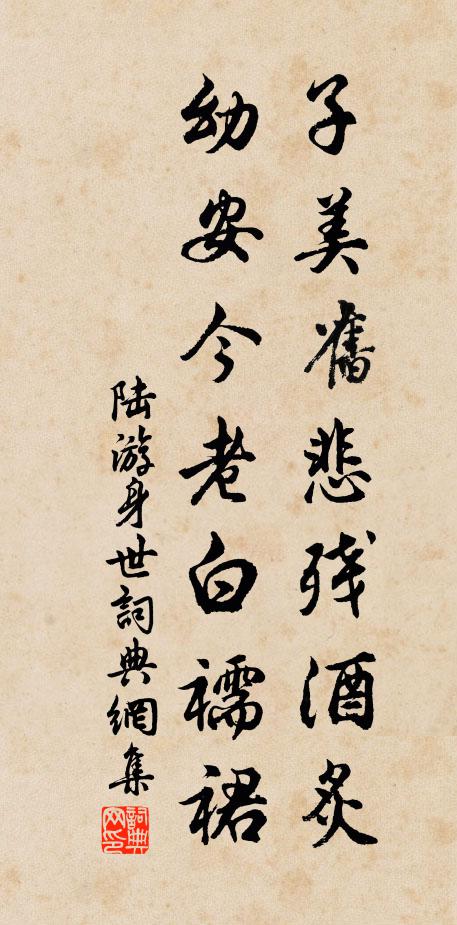 子美舊悲残酒炙
幼安今老白襦裙
陆游身世詞典網集
詞典网印